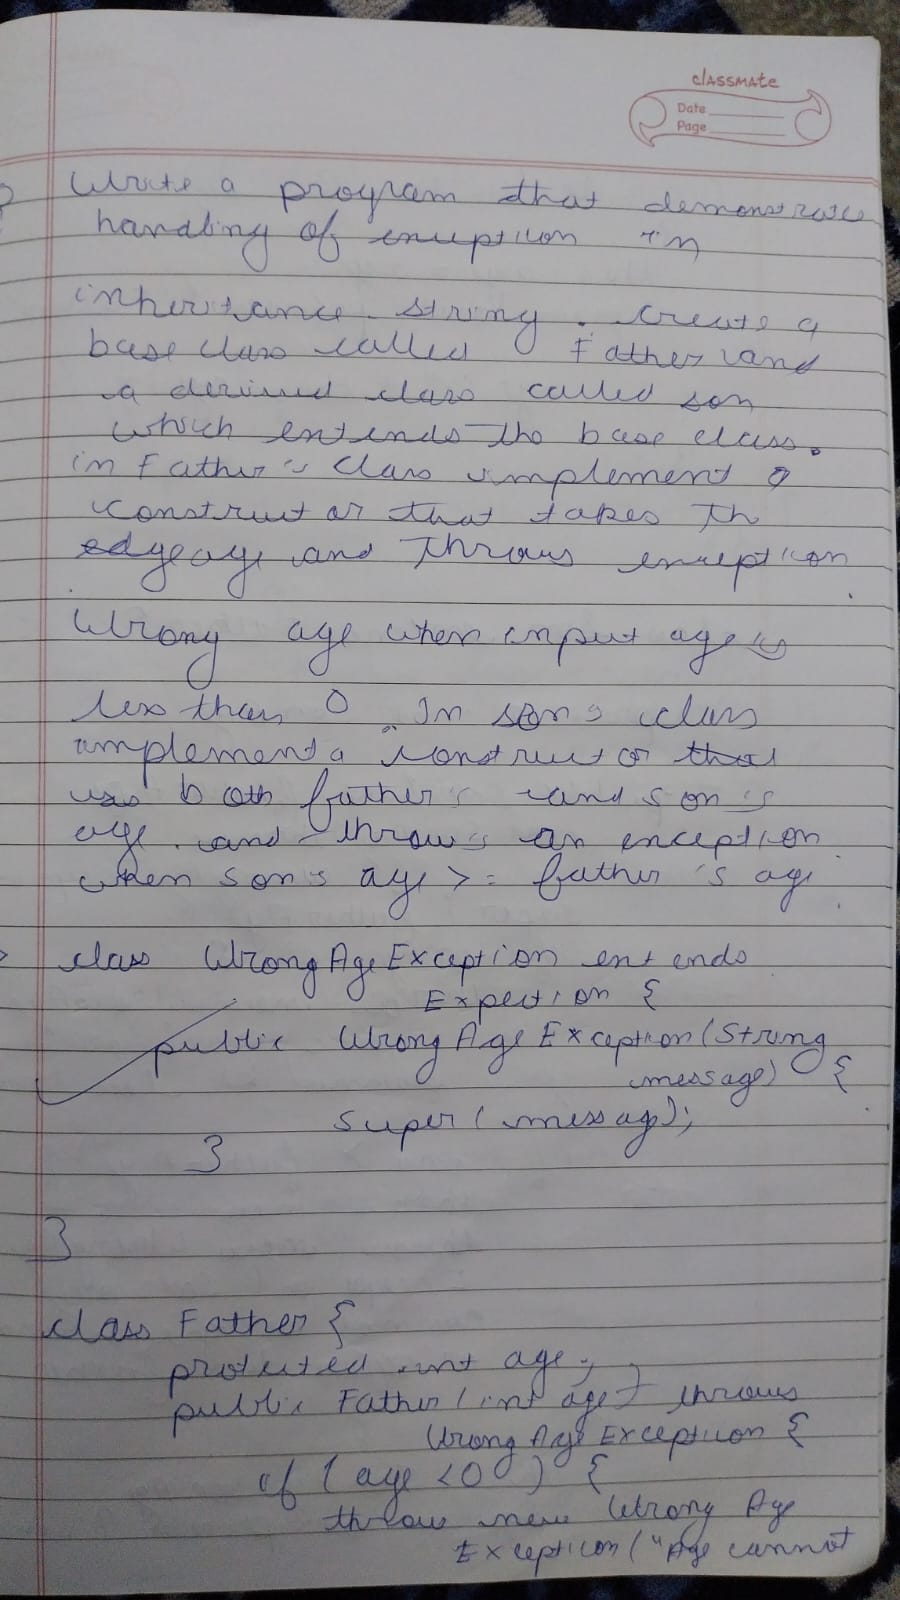 classmate
Date
Page
Write a program that demonstrate
handling of exception in
inheritance string. Create a
base class called Father and
a derived class called son
which extends the base class.
in Father's class implement a
constructor that takes th
age and throws exception
Wrong age when input age is
less than 0. In son's class
implement a constructor that
use both father's and son's
age. and throws an exception
when son's age >= father's age
class WrongAgeException extends
Expection {
public WrongAgeException(String
message) {
super(message);
}
}
class Father {
protected int age;
public Father(int age) throws
WrongAgeException {
if (age < 0) {
throw new Wrong Age
Exception("Age cannot